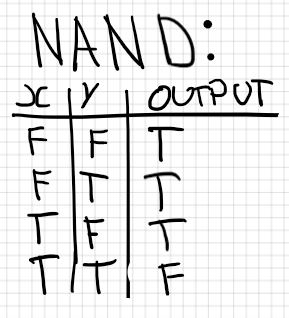 NAND:
x y OUTPUT
F F T
F T T
T F T
T T F